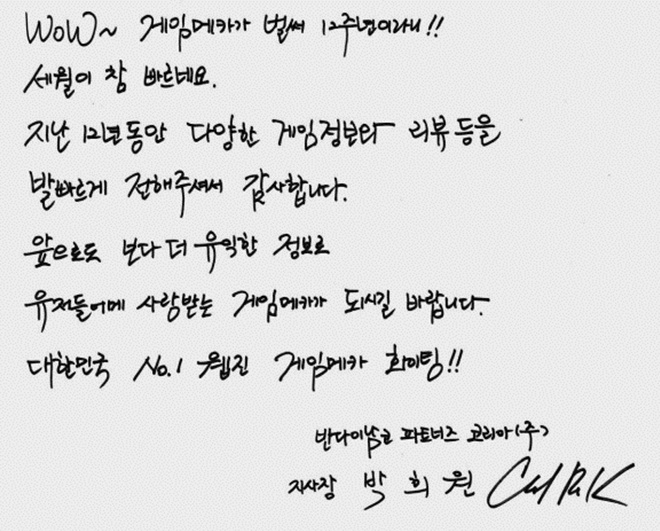 WOW~ 게임메카가 벌써 12주년이라니!!
세월이 참 빠르네요.
지난 12년동안 다양한 게임정보와 리뷰등을
발빠르게 전해주셔서 감사합니다.
앞으로도 보다 더 유익한 정보로
유저들에게 사랑받는 게임메카가 되시길 바랍니다.
대한민국 No.1 웹진 게임메카 화이팅!!
반다이남코 파트너즈 코리아(주)
지사장 박 희 원